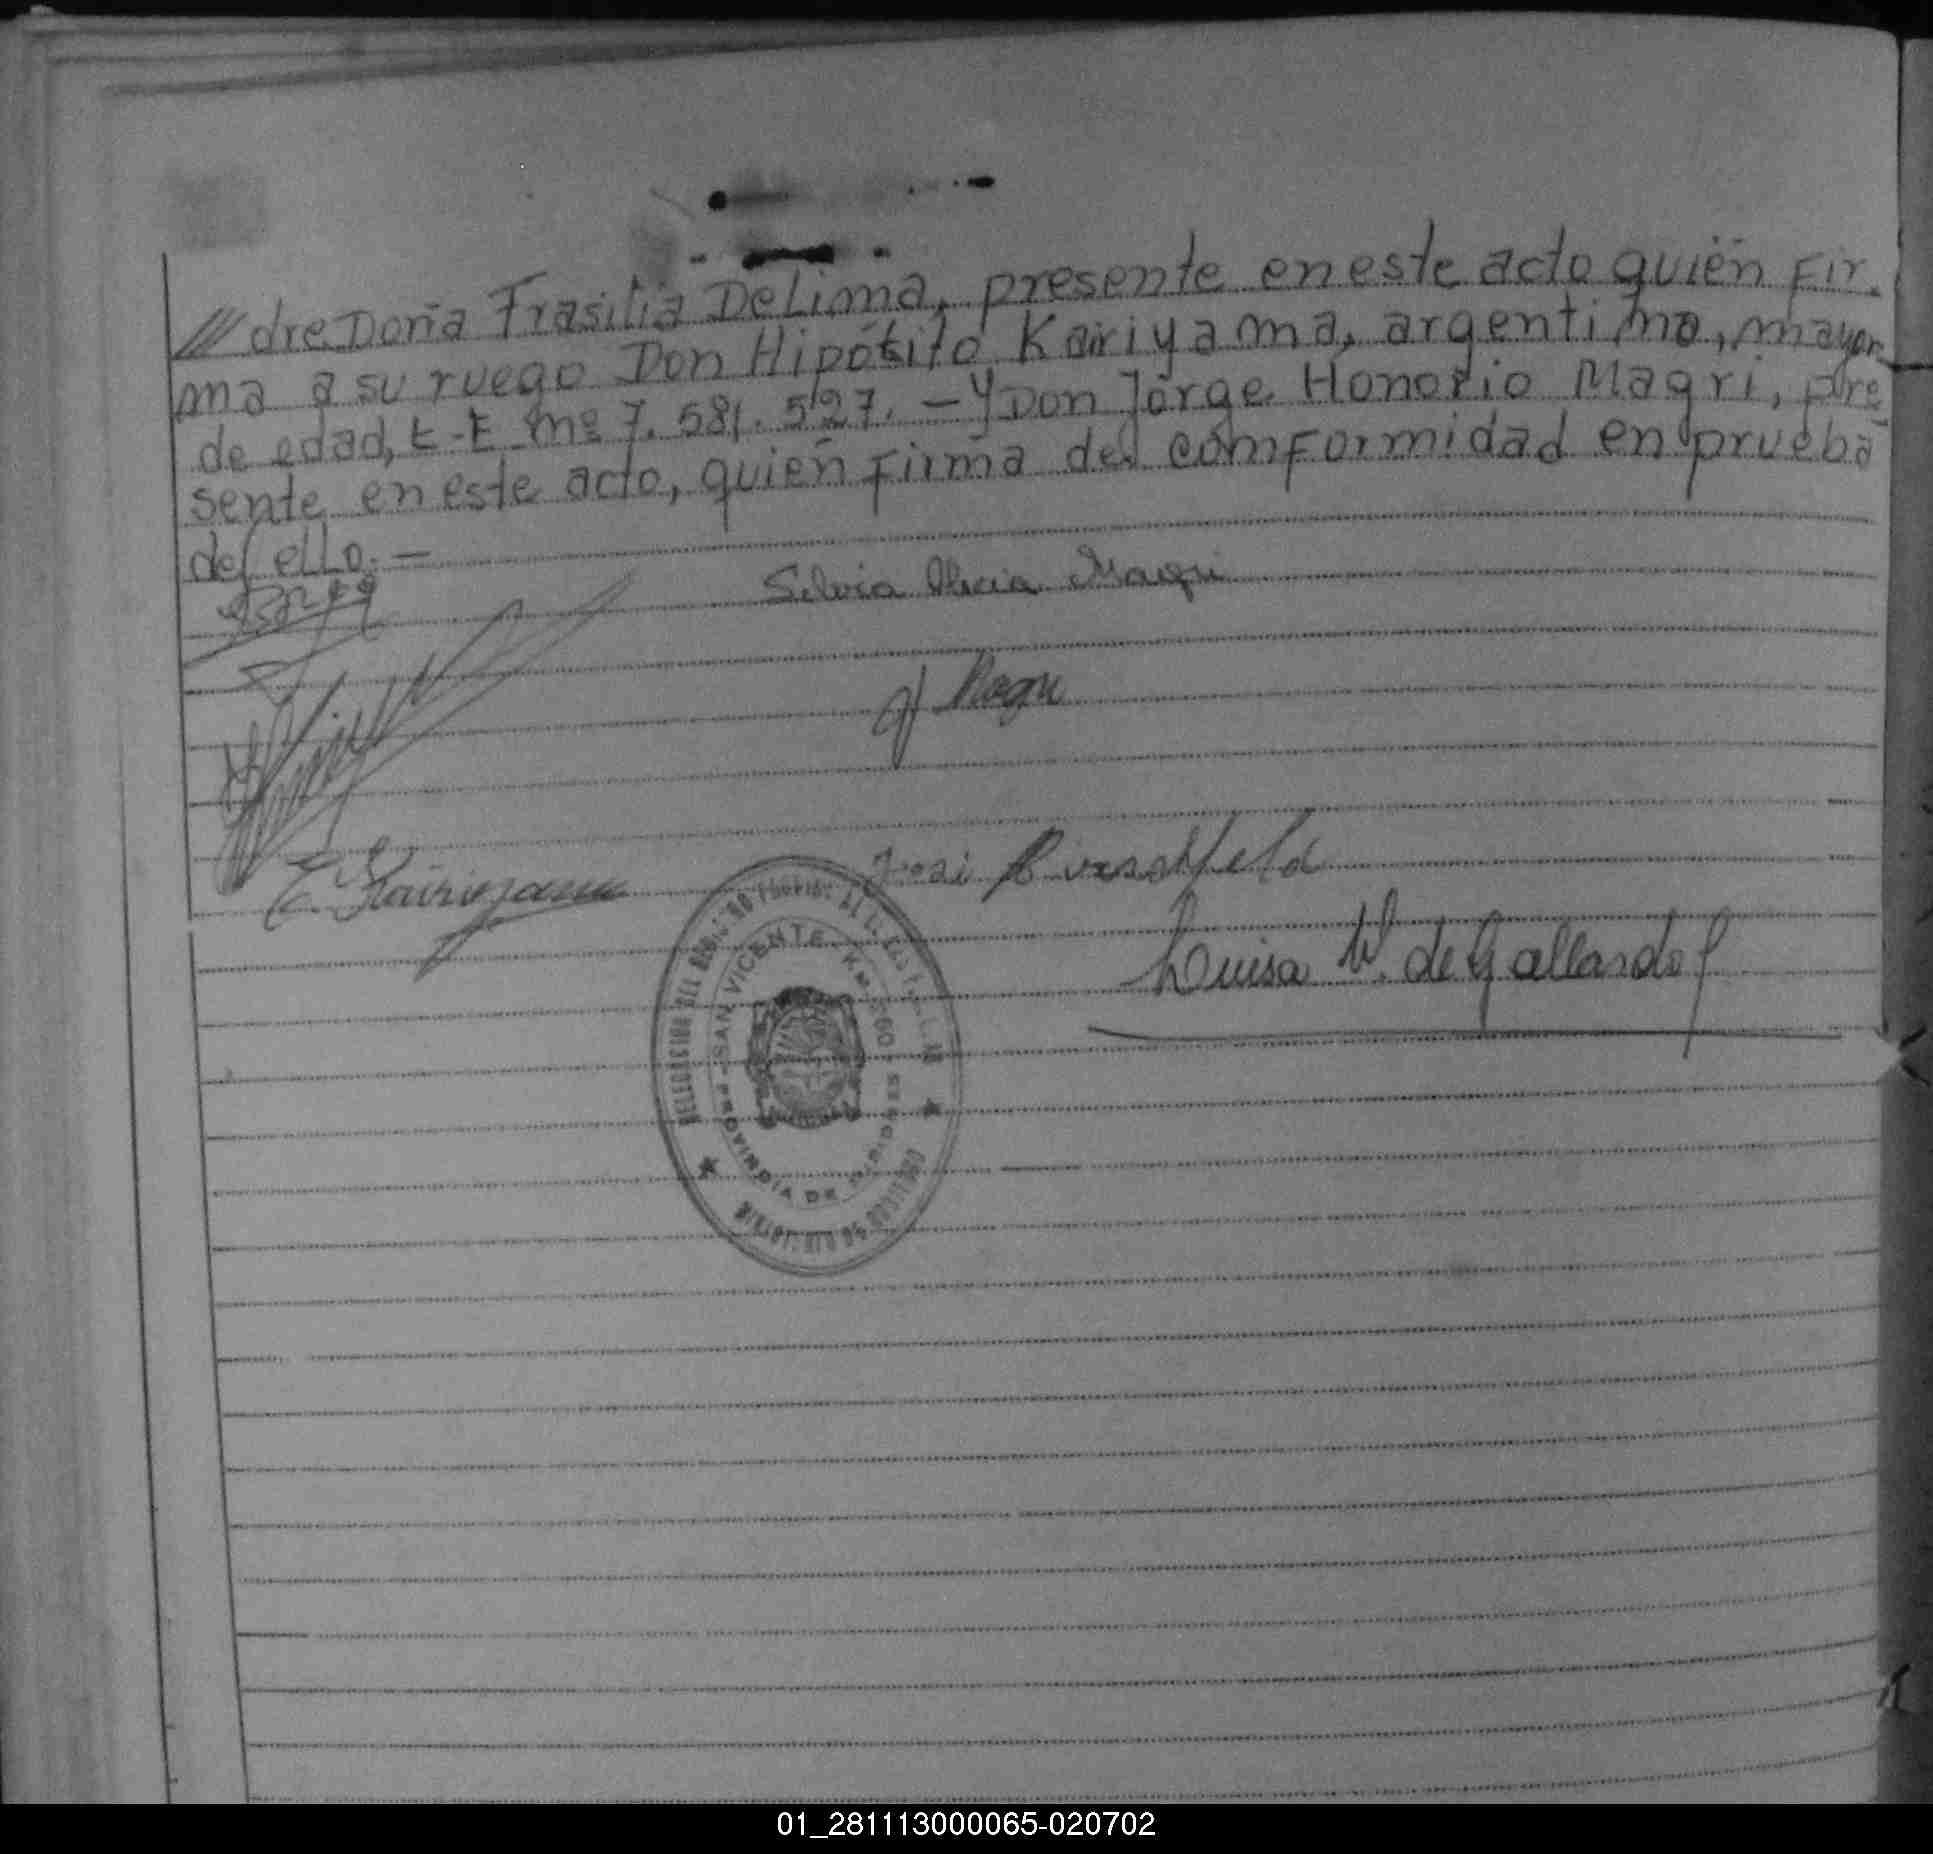 /// dre Doña Frasilia De Lima, presente en este acto quién Fir-
ma a su ruego Don Hipólito Kairiyama, argentino, mayor
de edad, L-E Nº 7.581.527.- Y Don Jorge Honorio Magri, pre-
sente en este acto, quién Firma de conformidad en prueba
de ello.-
Silvia Magri
J Magri
E. Kairiyama
José
Luisa W. de Gallardo
SAN VICENTE - Km. 260
PROVINCIA DE MISIONES
01_281113000065-020702